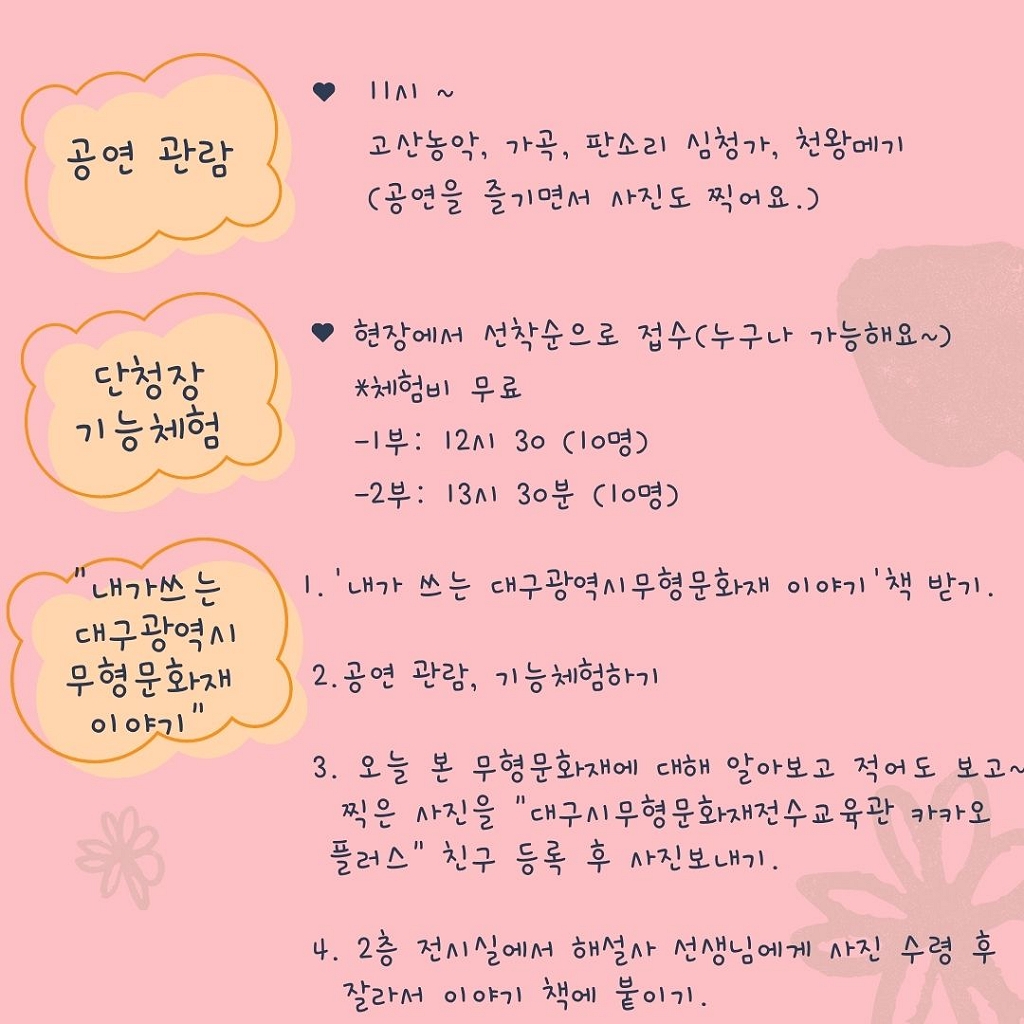 공연 관람
♥ 11시 ~
고산농악, 가곡, 판소리 심청가, 천왕메기
(공연을 즐기면서 사진도 찍어요.)
단청장
기능체험
♥ 현장에서 선착순으로 접수(누구나 가능해요~)
*체험비 무료
-1부: 12시 30 (10명)
-2부: 13시 30분 (10명)
"내가쓰는
대구광역시
무형문화재
이야기"
1. '내가 쓰는 대구광역시무형문화재 이야기'책 받기.
2. 공연 관람, 기능체험하기
3. 오늘 본 무형문화재에 대해 알아보고 적어도 보고~
찍은 사진을 "대구시무형문화재전수교육관 카카오
플러스" 친구 등록 후 사진보내기.
4. 2층 전시실에서 해설사 선생님에게 사진 수령 후
잘라서 이야기 책에 붙이기.